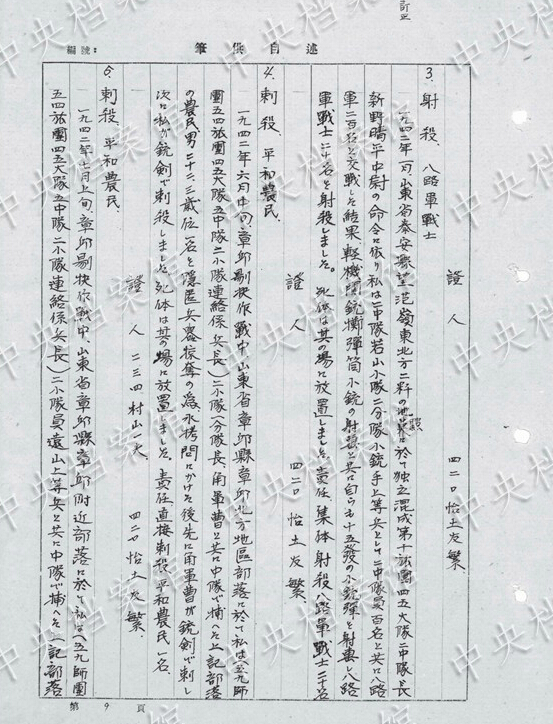 訂正
編號：
述自供筆
證人　四二〇　怡土友繁
3. 射殺、八路軍戰士
一九四二年一月、山東省泰安縣望范嶺東北方二粁の地點に於て独立混成第十旅團四五大隊二中隊長
新野晴平中尉の命令に依り私は二中隊若山小隊二分隊小銃手上等兵として二中隊員百名と共に八路
軍二百名と交戰した結果、輕機関銃擲彈筒小銃の射撃と共に自らも十五發の小銃彈を射撃し八路
軍戰士二十名を射殺しました。死体は其の場に放置しました。責任 集体射殺八路軍戰士二十名
證人　四二〇　怡土友繁、
4. 刺殺、平和農民、
一九四二年六月中旬、章邱剔抉作戰中、山東省章邱縣章邱北方地區部落に於て私は（五九師
團五四旅團四五大隊五中隊二小隊連絡係兵長）二小隊（分隊長、角軍曹と共に中隊で捕へた上記部落
の農民、男二十二、三歳位一名を隱匿兵器掠奪の爲、水拷問にかけた後先に角軍曹が銃剣で刺し
次に私が銃剣で刺殺しました死体は其の場に放置しました、責任 直接刺殺 平和農民一名、
證人　二三四　村山一夫、　四二〇　怡土友繁、
5. 刺殺、平和農民、
一九四二年六月上旬、章邱剔抉作戰中、山東省章邱縣章邱附近部落に於て私は（五九師團
五四旅團四五大隊五中隊二小隊連絡係兵長）二小隊員遠山上等兵と共に中隊で捕へた上記部落
第 9 頁
中央档案馆